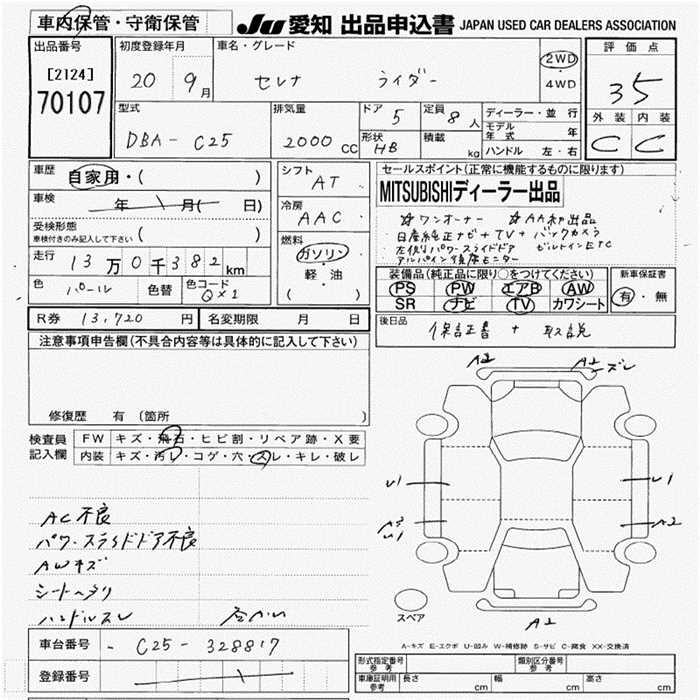 車内保管・守衛保管
JU 愛知 出品申込書 JAPAN USED CAR DEALERS ASSOCIATION
出品番号
[2124]
70107
初度登録年月
20 9月
車名・グレード
セレナ ライダー
2WD
・
4WD
評価点
35
外装 内装
C C
型式
DBA-C25
排気量
2000 cc
ドア 5
形状 HB
定員 8人
積載 kg
ディーラー・並行
モデル年式 年
ハンドル 左・右
車歴 自家用・( )
車検 年 月( 日)
受検形態
車検付きのみ記入して下さい ( )
走行 13万0千382km
色 パール 色替 色コード QX1
シフト
AT
冷房
AAC
燃料
ガソリン
・
軽・油
( )
セールスポイント(正常に機能するものに限ります)
MITSUBISHIディーラー出品
☆ワンオーナー ☆AA初出品
日産純正ナビ+TV+バックカメラ
左側パワースライドドア ビルトインETC
アルパイン後席モニター
装備品(純正品に限り○をつけてください)
PS PW エアB AW
SR ナビ TV カワシート
新車保証書
有・無
後日品
保証書 + 取説
R券 13,720 円 名変期限 月 日
注意事項申告欄(不具合内容等は具体的に記入して下さい)
修復歴 有 (箇所 )
検査員
記入欄
FW キズ・飛石・ヒビ割・リペア跡・X要
内装 キズ・汚レ・コゲ・穴・スレ・キレ・破レ
AC不良
パワースライドドア不良
AWキズ
シートヘタリ
ハンドルスレ
A2
A2 ズレ
U1
U1
A3
U1
A2
A2
スペア
A-キズ E-エクボ U-凹み W-補修跡 S-サビ C-腐食 XX-交換済
車台番号 C25-328817
登録番号
形式指定番号 参考
類別区分番号 参考
車庫証明用 参考 長さ cm 幅 cm 高さ cm